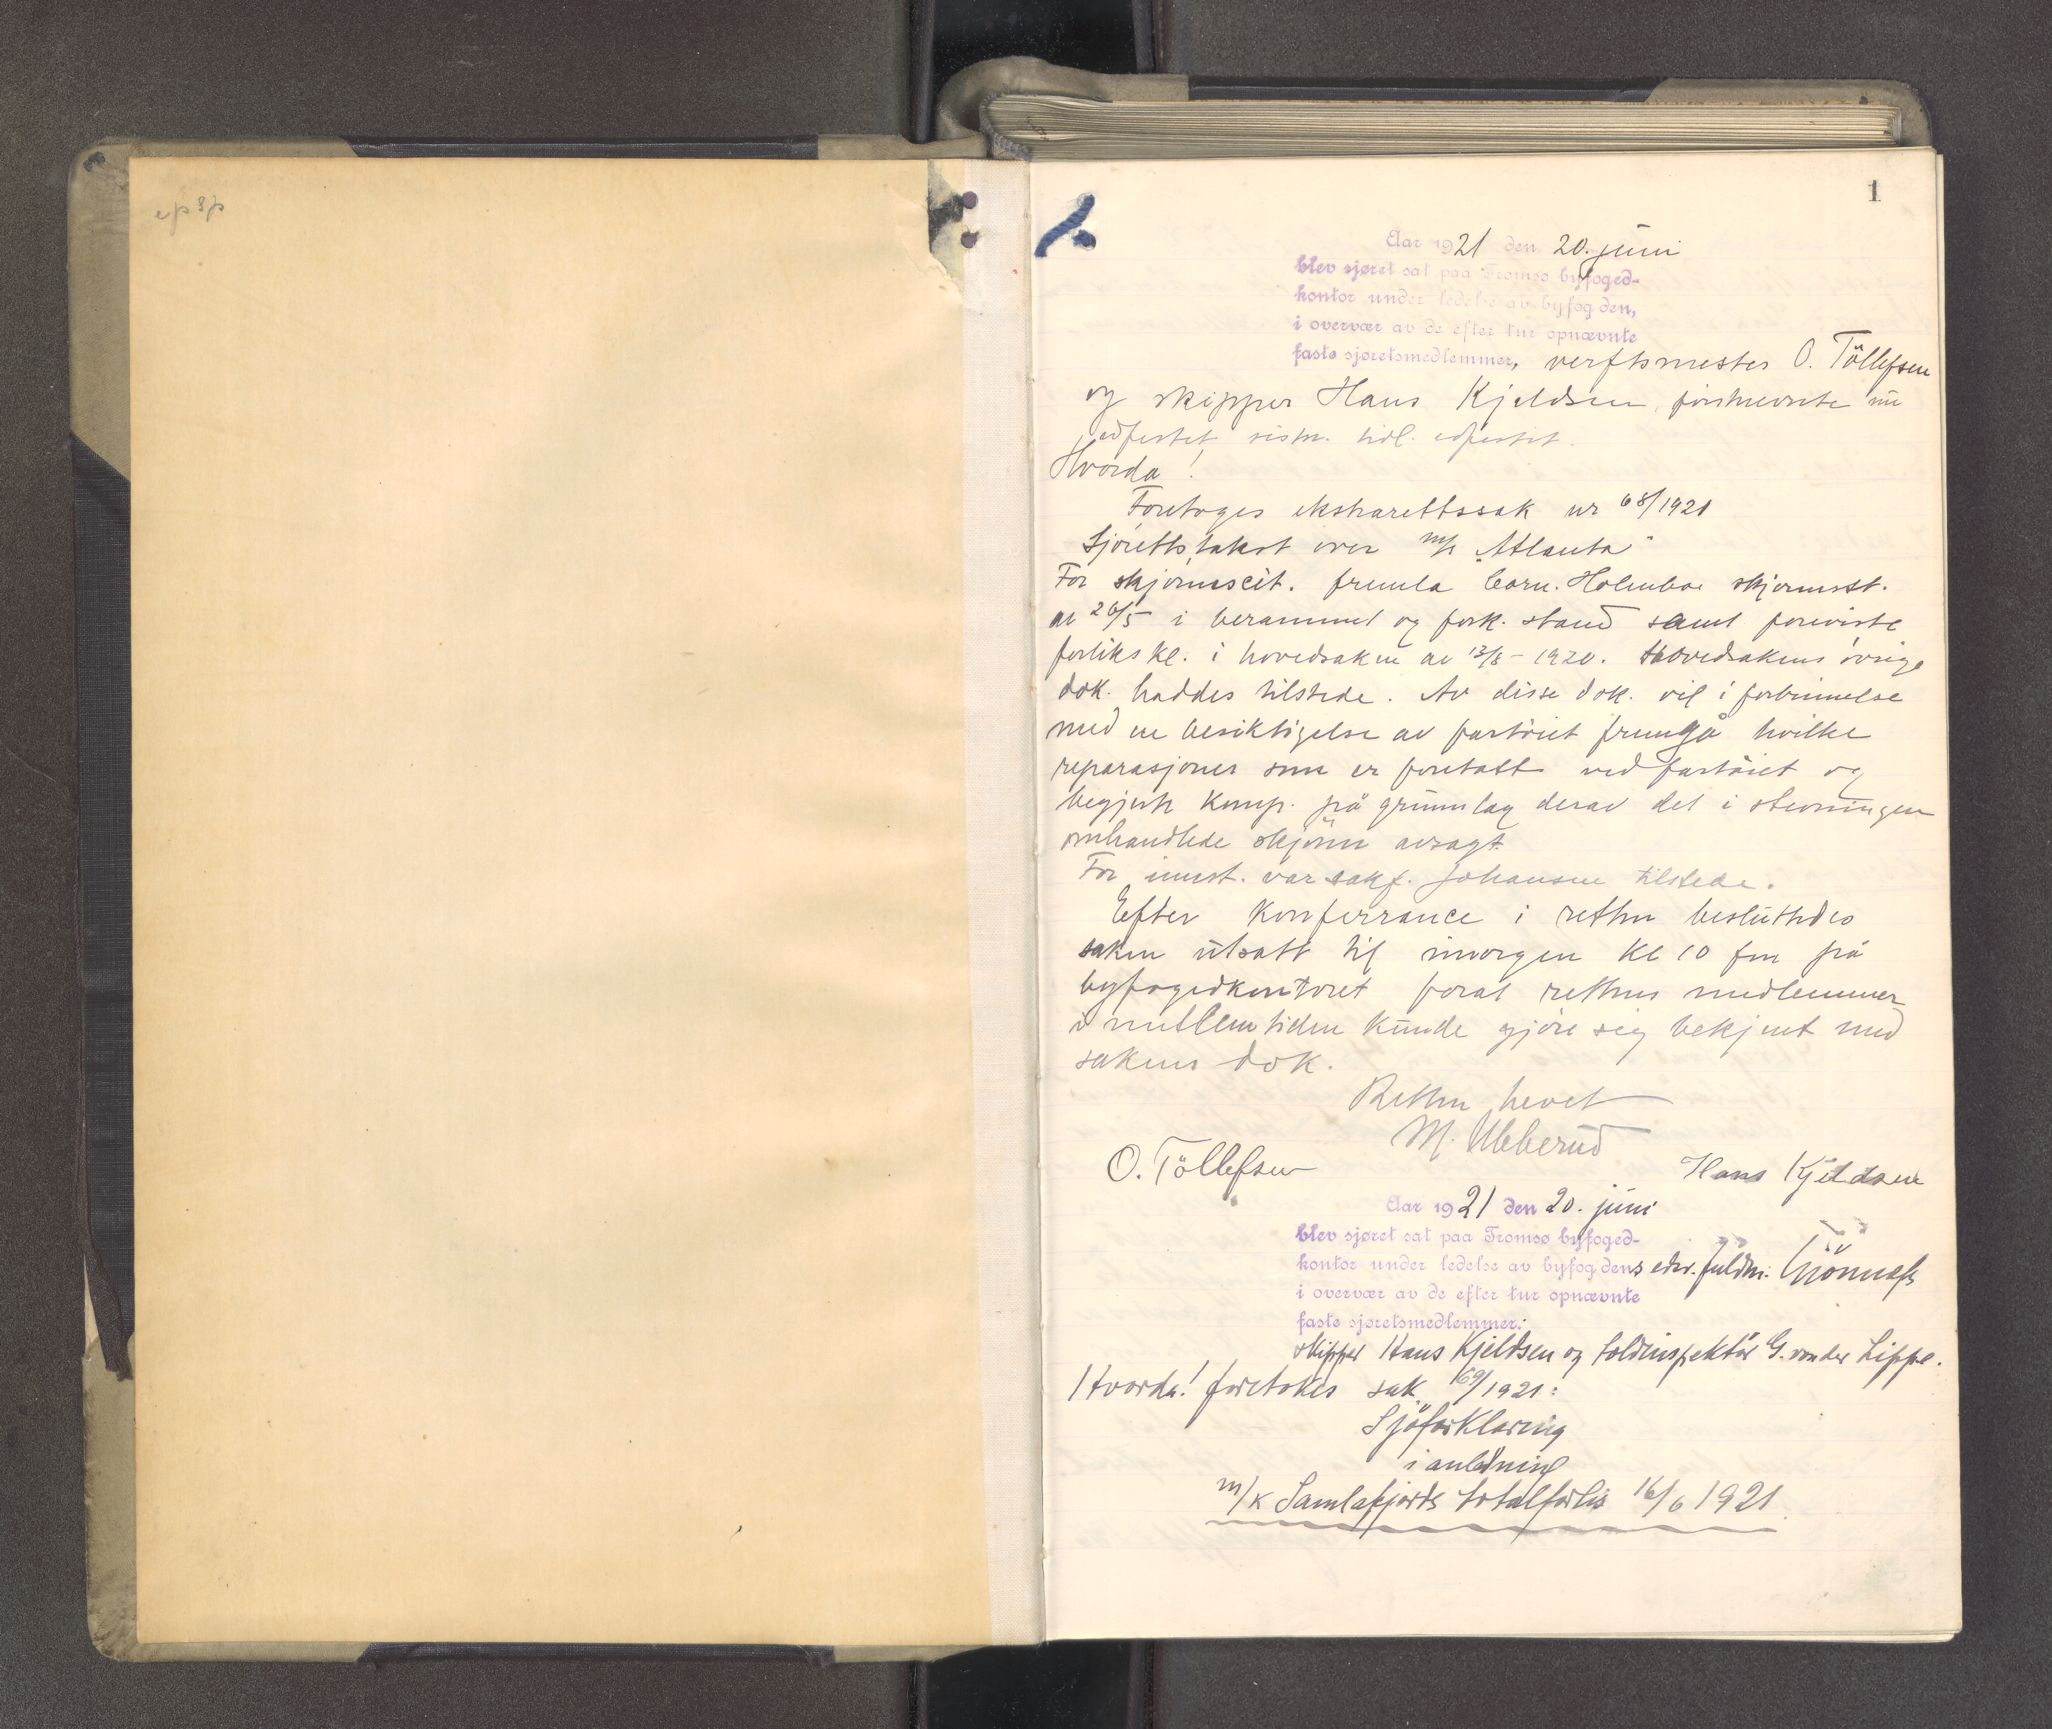 1
1.
Aar 1921 den 20. juni
blev sjøret sat paa Tromsø byfoged-
kontor under ledelse av byfogden,
i overvær av de efter tur opnævnte
faste sjøretsmedlemmer, verftsmester O. Töllefsen
og skipper Hans Kjeldsen, förstnevnte nu
edfestet, sistn. tidl. edfestet.
Hvorda!
Foretoges ekstrarettssak nr 68/1921
Sjörettstakst over m/k "Atlanta"
For skjönscit. fremla Corn. Holmboe skjönsst.
av 26/5 i berammet og fork. stand samt foreviste
forlikskl. i hovedsaken av 13/8 - 1920. Hovedsakens övrige
dok. haddes tilstede. Av disse dok. vil i forbinnelse
med en besiktigelse av fartöiet fremgå hvilke
reparasjoner som er foretatt ved fartöiet og
begjerte komp. på grunnlag derav det i stevningen
omhandlede skjönn avsagt.
For innst. var sakf. Johansen tilstede.
Efter konferrance i retten besluttedes
saken utsatt til imorgen kl 10 fm på
byfogedkontoret forat rettens medlemmer
i mellemtiden kunde gjöre sig bekjent med
sakens dok.
Retten hevet
M. Ubberud
O. Töllefsen
Hans Kjeldsen
Aar 1921 den 20. juni
blev sjøret sat paa Tromsø byfoged-
kontor under ledelse av byfogdens edsv. fuldm.
i overvær av de efter tur opnævnte
faste sjøretsmedlemmer:
skipper Hans Kjeldsen og toldinspektör G. von der Lippe.
Hvorda! foretokes sak 69/1921:
Sjöforklaring
i anledning
m/k Samlafjords totalforlis 16/6 1921.